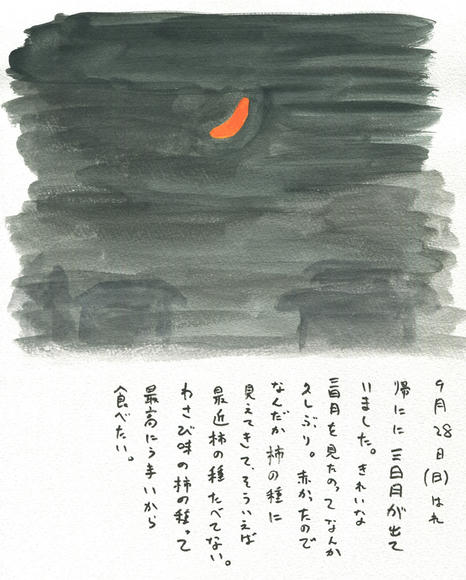 9月28日(日)はれ
帰りに三日月が出て
いました。きれいな
三日月を見たのってなんか
久しぶり。赤かったので
なんだか柿の種に
見えてきて、そういえば
最近柿の種たべてない。
わさび味の柿の種って
最高にうまいから
食べたい。